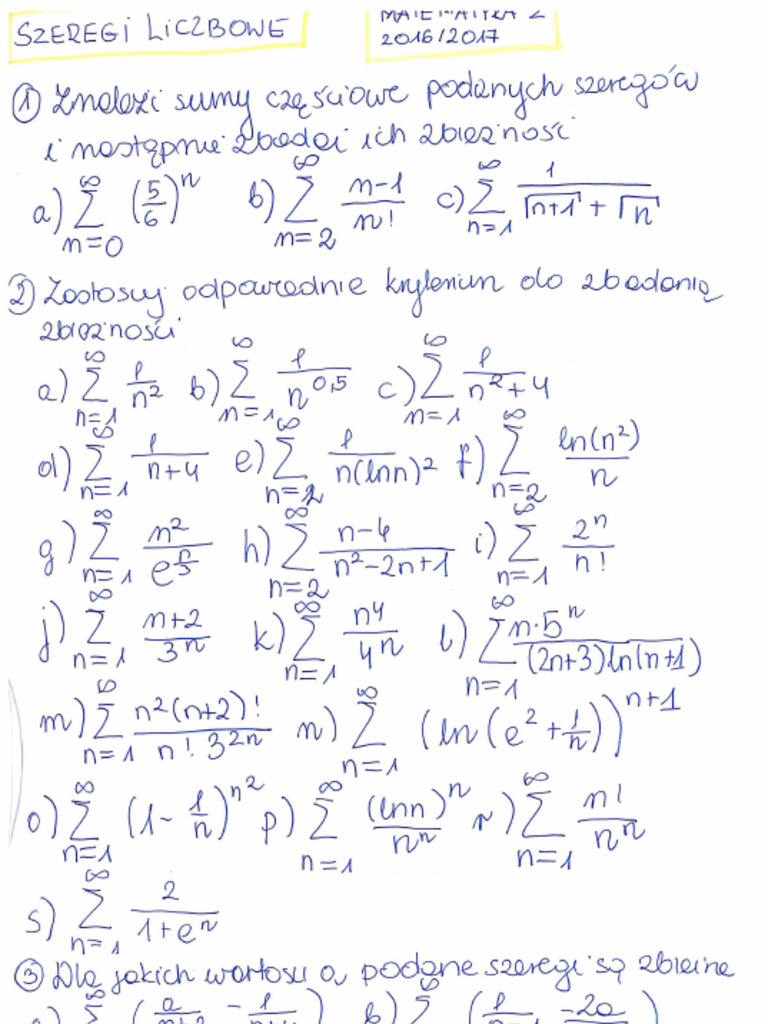 SZEREGI LICZBOWE
MATEMATYKA 2
2016/2017
① Znaleźć sumy częściowe podanych szeregów
i następnie zbadać ich zbieżność
a) ∑_{n=0}^{∞} (5/6)^n b) ∑_{n=2}^{∞} (n-1)/n! c) ∑_{n=1}^{∞} 1/(√(n+1) + √n)
② Zastosuj odpowiednie kryterium do zbadania
zbieżności
a) ∑_{n=1}^{∞} 1/n^2 b) ∑_{n=1}^{∞} 1/n^{0,5} c) ∑_{n=1}^{∞} 1/(n^2+4)
d) ∑_{n=1}^{∞} 1/(n+4) e) ∑_{n=2}^{∞} 1/(n(lnn)^2) f) ∑_{n=2}^{∞} ln(n^2)/n
g) ∑_{n=1}^{∞} n^2/e^{n/3} h) ∑_{n=2}^{∞} (n-4)/(n^2-2n+1) i) ∑_{n=1}^{∞} 2^n/n!
j) ∑_{n=1}^{∞} (n+2)/3^n k) ∑_{n=1}^{∞} n^4/4^n l) ∑_{n=1}^{∞} n·5^n/((2n+3)ln(n+1))
m) ∑_{n=1}^{∞} n^2(n+2)!/(n! 3^{2n}) n) ∑_{n=1}^{∞} (ln(e^2+1/n))^{n+1}
o) ∑_{n=1}^{∞} (1-1/n)^{n^2} p) ∑_{n=1}^{∞} (lnn)^n/n^n r) ∑_{n=1}^{∞} n!/n^n
s) ∑_{n=1}^{∞} 2/(1+e^n)
③ Dla jakich wartości a podane szeregi są zbieżne